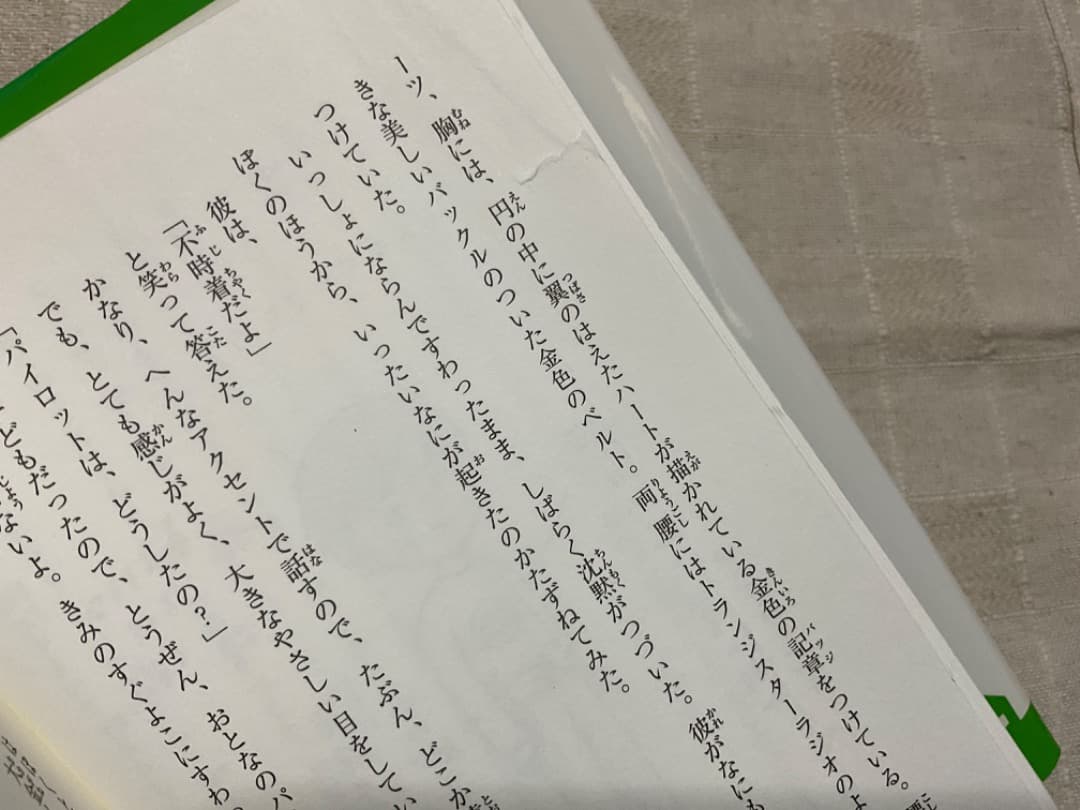 ーツ、胸には、円の中に翼のはえたハートが描かれている金色の記章をつけている。腰に
きな美しいバックルのついた金色のベルト。両腰にはトランジスターラジオのよ
つけていた。
いっしょにならんですわったまま、しばらく沈黙がつづいた。彼がなにも
ぼくのほうから、いったいなにが起きたのかたずねてみた。
彼は、
「不時着だよ」
と笑って答えた。
かなり、へんなアクセントで話すので、たぶん、どこか
でも、とても感じがよく、大きなやさしい目をしてい
「パイロットは、どうしたの？」
どもだったので、とうぜん、おとなのパ
ないよ。きみのすぐよこにすわ